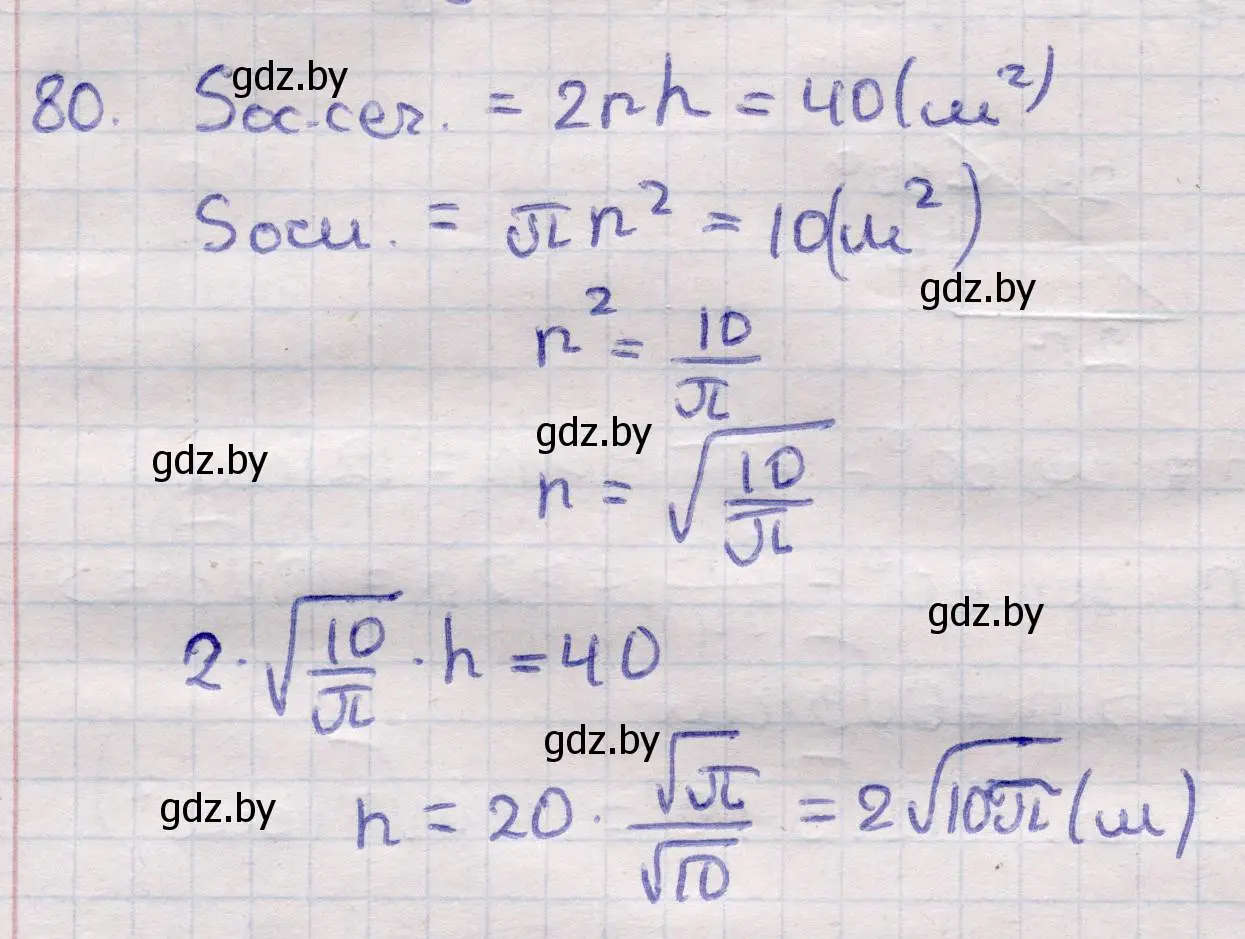 gdz.by
80. Sос.сеч. = 2rh = 40(м²)
Sосн. = πr² = 10(м²)
gdz.by
r² = 10/π
gdz.by
gdz.by
r = √(10/π)
gdz.by
2 · √(10/π) · h = 40
gdz.by
gdz.by
h = 20 · √π/√10 = 2√10π (м)